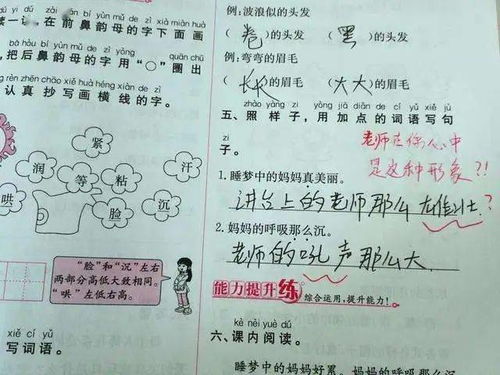 dú yi dú zài ān bí yùn mǔ de zì xià miàn huà
读一读,在前鼻韵母的字下面画
bǎ hòu bí yùn mǔ de zì yòng quān chū
,把后鼻韵母的字用“○”圈出
rèn zhēn chāo xiě huà héng xiàn de zì
认真抄写画横线的字。
紧
润 等 粘 汗
哄 脸 沉
“脸”和“沉”左右
两部分高低大致相同。
“哄”左低右高。
xiě cí yǔ
写词语。
例:波浪似的头发
(卷)的头发 (黑)的头发
例:弯弯的眉毛
(长长)的眉毛 (大大)的眉毛
zhào yàng zi yòng jiā diǎn de cí yǔ xiě jù
五、照样子,用加点的词语写句
zi
子。
老师在你心中
是这种形象?!
1.睡梦中的妈妈真美丽。
讲台上的老师那么雄壮?
2.妈妈的呼吸那么沉。
老师的吼声那么大
能力提升练 综合运用,提升能力!
kè nèi yuè dú
六、课内阅读。
睡梦中的妈妈好累。妈妈的呼吸那么沉